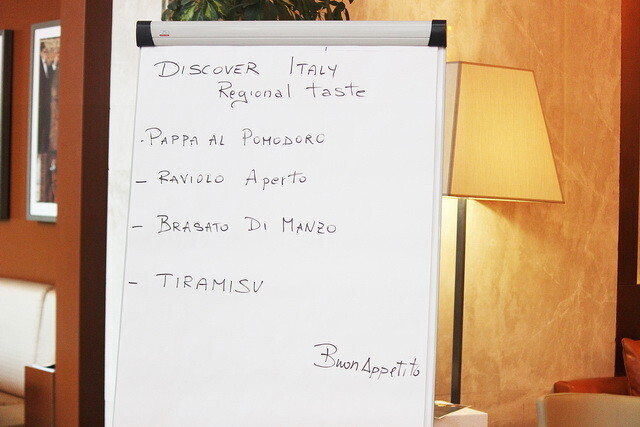 DISCOVER ITALY
Regional taste
- PAPPA AL POMODORO
- RAVIOLO Aperto
- BRASATO DI MANZO
- TIRAMISU
Buon Appetito